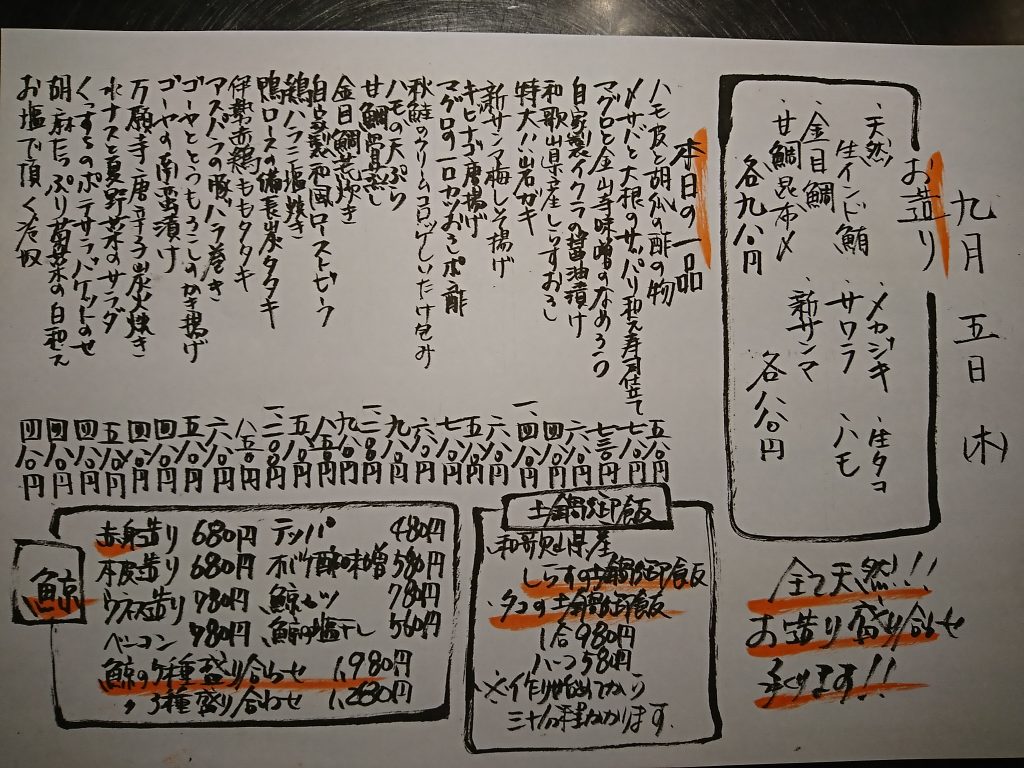 九月 五日 (木)
お造り
・天然
生インド鮪
・金目鯛
・甘鯛昆布〆
各九八〇円
・メカジキ
・サワラ
・新サンマ
・生タコ
・ハモ
各八八〇円
全て天然!!
お造り盛り合わせ
承ります!!
本日の一品
ハモ皮と胡瓜の酢の物 五八〇円
〆サバと大根のサッパリ和え寿司仕立て 七八〇円
マグロと金山寺味噌のなめろう 七三〇円
自家製イクラの醤油漬け 六八〇円
和歌山県産生しらすおろし 四八〇円
特大!!岩ガキ 一、四八〇円
新サンマ梅しそ揚げ 六八〇円
キビナゴ唐揚げ 五八〇円
マグロの一口カツおろしポン酢 七八〇円
秋鮭のクリームコロッケしいたけ包み 六八〇円
ハモの天ぷら 九八〇円
甘鯛骨蒸し
金目鯛荒炊き 九八〇円
自家製和風ローストビーフ
鶏ハラミ塩焼き 五八〇円
鴨ロースの備長炭タタキ
伊勢赤鶏ももタタキ 八五〇円
アスパラの豚バラ巻き 六八〇円
ゴーヤととうもろこしのかき揚げ 五八〇円
ゴーヤの南蛮漬け 四八〇円
万願寺唐辛子炭火焼き 四八〇円
水ナスと夏野菜のサラダ 五八〇円
くっするのポテサラバゲットのせ 四八〇円
胡麻たっぷり青菜の白和え 四八〇円
お塩で頂く冷奴 四八〇円
土鍋御飯
和歌山県産
しらすの土鍋御飯
タコの土鍋御飯
1合980円
ハーフ580円
※作り始めてから
三十分程かかります。
鯨
赤身造り 680円
本皮造り 680円
ウネス造り 780円
ベーコン 980円
テッパ 480円
さらし鯨酢味噌 580円
鯨カツ 780円
鯨の塩干し 560円
鯨の5種盛り合わせ 1,980円
〃 3種盛り合わせ 1,280円